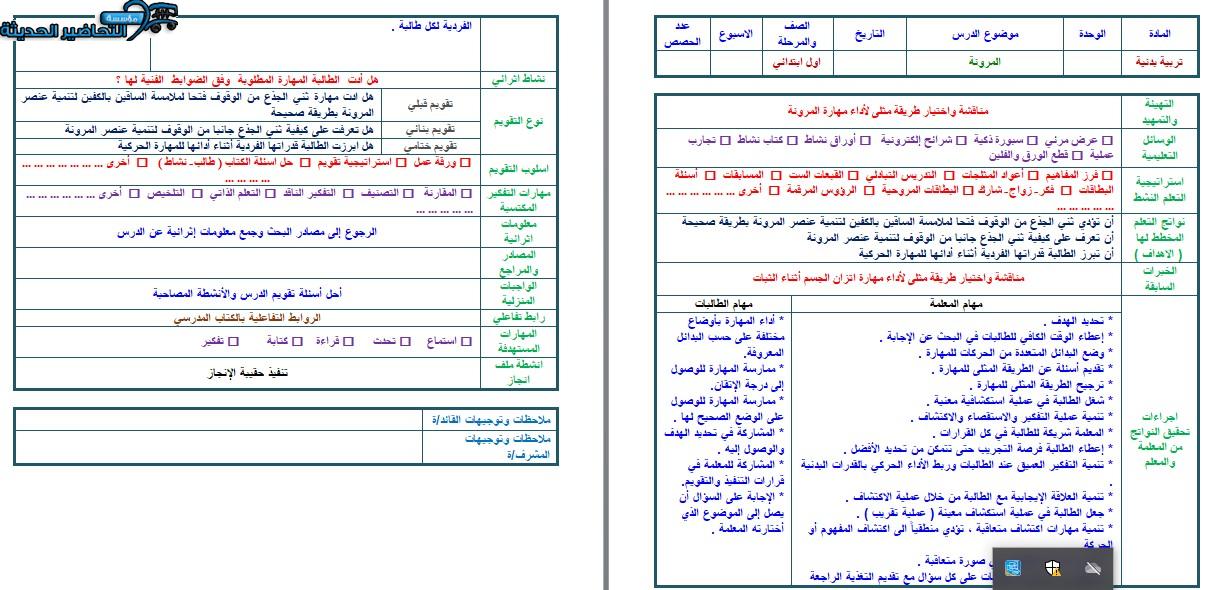 المادة الوحدة موضوع الدرس التاريخ الصف والمرحلة الاسبوع عدد الحصص
تربية بدنية المرونة اول ابتدائي
التهيئة والتمهيد
مناقشة واختيار طريقة مثلى لأداء مهارة المرونة
الوسائل التعليمية
□ عرض مرئي □ سبورة ذكية □ شرائح إلكترونية □ أوراق نشاط □ كتاب نشاط □ تجارب
عملية □ قطع الورق والفلين
استراتيجية التعلم النشط
□ فرز المفاهيم □ أعواد المثلجات □ التدريس التبادلي □ القبعات الست □ المسابقات □ أسئلة
البطاقات □ فكر- زواج- شارك □ البطاقات المروحية □ الرؤوس المرقمة □ أخرى ... ... ... ... ... ...
... ... ... ...
نواتج التعلم المخطط لها ( الاهداف )
أن تؤدي ثني الجذع من الوقوف فتحا لملامسة الساقين بالكفين لتنمية عنصر المرونة بطريقة صحيحة
أن تعرف على كيفية ثني الجذع جانبا من الوقوف لتنمية عنصر المرونة
أن تبرز الطالبة قدراتها الفردية أثناء أدائها للمهارة الحركية
الخبرات السابقة
مناقشة واختيار طريقة مثلى لأداء مهارة اتزان الجسم أثناء الثبات
اجراءات تحقيق النواتج من المعلمة والمعلم
مهام المعلمة
* تحديد الهدف .
* إعطاء الوقت الكافي للطالبات في البحث عن الإجابة .
* وضع البدائل المتعددة من الحركات للمهارة .
* تقديم أسئلة عن الطريقة المثلى للمهارة .
* ترجيح الطريقة المثلى للمهارة .
* شغل الطالبة في عملية استكشافية معنية .
* تنمية عملية التفكير والاستقصاء والاكتشاف .
* المعلمة شريكة للطالبة في كل القرارات .
* إعطاء الطالبة فرصة التجريب حتى تتمكن من تحديد الأفضل .
* تنمية التفكير العميق عند الطالبات وربط الأداء الحركي بالقدرات البدنية
.
* تنمية العلاقة الإيجابية مع الطالبة من خلال عملية الاكتشاف .
* جعل الطالبة في عملية استكشاف معينة ( عملية تقريب ) .
* تنمية مهارات اكتشاف متعاقبة ، تؤدي منطقياً الى اكتشاف المفهوم أو
الحركة
صورة متعاقبة .
على كل سؤال مع تقديم التغذية الراجعة
مهام الطالبات
* أداء المهارة بأوضاع
مختلفة على حسب البدائل
المعروفة.
* ممارسة المهارة للوصول
إلى درجة الإتقان.
* ممارسة المهارة للوصول
على الوضع الصحيح لها .
* المشاركة في تحديد الهدف
والوصول إليه .
* المشاركة للمعلمة في
قرارات التنفيذ والتقويم.
* الإجابة على السؤال أن
يصل إلى الموضوع الذي
أختارته المعلمة .
مؤسسة
التحاضير الحديثة
الفردية لكل طالبة .
نشاط اثرائي
هل أدت الطالبة المهارة المطلوبة وفق الضوابط الفنية لها ؟
نوع التقويم
تقويم قبلي
هل ادت مهارة ثني الجذع من الوقوف فتحا لملامسة الساقين بالكفين لتنمية عنصر
المرونة بطريقة صحيحة
تقويم بنائي
هل تعرفت على كيفية ثني الجذع جانبا من الوقوف لتنمية عنصر المرونة
تقويم ختامي
هل ابرزت الطالبة قدراتها الفردية أثناء أدائها للمهارة الحركية
اسلوب التقويم
□ ورقة عمل □ استراتيجية تقويم □ حل اسئلة الكتاب ( طالب- نشاط ) □ أخرى ... ... ... ... ... ... ...
... ... ... ...
مهارات التفكير المكتسبة
□ المقارنة □ التصنيف □ التفكير الناقد □ التعلم الذاتي □ التلخيص □ أخرى ... ... ... ... ... ...
... ... ... ... ...
معلومات اثرائية
الرجوع إلى مصادر البحث وجمع معلومات إثرائية عن الدرس
المصادر والمراجع
الواجبات المنزلية
أحل أسئلة تقويم الدرس والأنشطة المصاحبة
رابط تفاعلي
الروابط التفاعلية بالكتاب المدرسي
المهارات المستهدفة
□ استماع □ تحدث □ قراءة □ كتابة □ تفكير
انشطة ملف انجاز
تنفيذ حقيبة الإنجاز
ملاحظات وتوجيهات القائد/ة
ملاحظات وتوجيهات
المشرف/ة